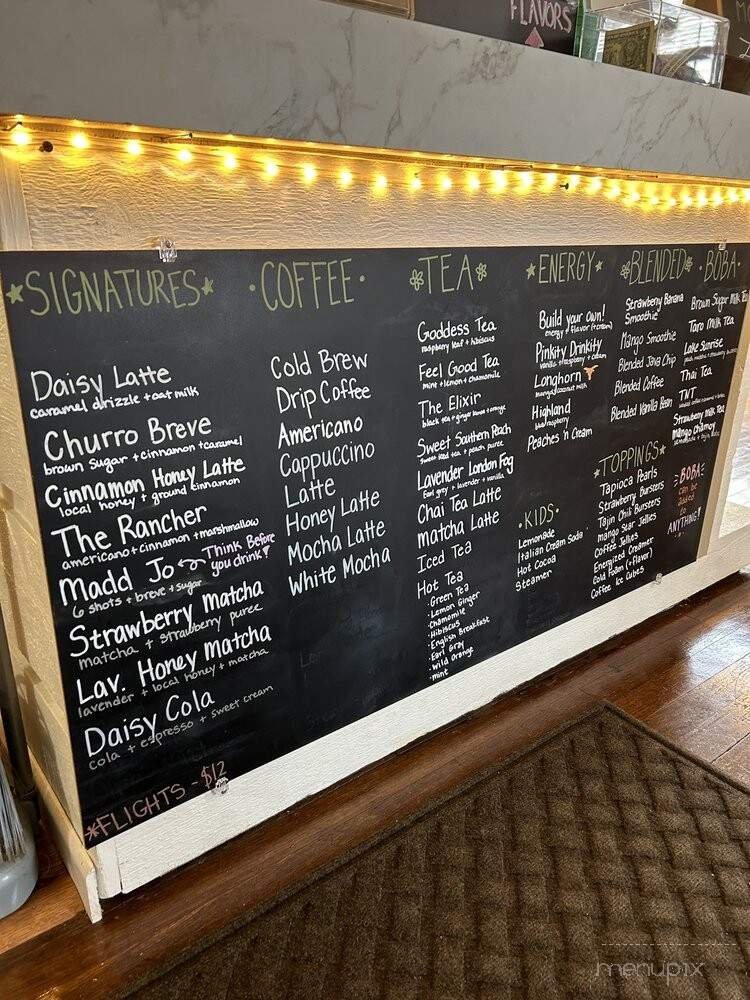 FLAVORS
SIGNATURES
Daisy Latte
caramel drizzle + oat milk
Churro Breve
brown sugar + cinnamon + caramel
Cinnamon Honey Latte
local honey + ground cinnamon
The Rancher
americano + cinnamon + marshmallow
Madd Jo Think Before
you drink!
6 shots + breve + sugar
Strawberry matcha
matcha + strawberry puree
Lav. Honey Matcha
lavender + local honey + matcha
Daisy Cola
cola + espresso + sweet cream
*FLIGHTS - $12
COFFEE
Cold Brew
Drip Coffee
Americano
Cappuccino
Latte
Honey Latte
Mocha Latte
White Mocha
TEA
Goddess Tea
raspberry leaf + hibiscus
Feel Good Tea
mint + lemon + chamomile
The Elixir
black tea + ginger lemon + orange
Sweet Southern Peach
sweet iced tea + peach puree
Lavender London Fog
Earl grey + lavender + vanilla
Chai Tea Latte
matcha Latte
Iced Tea
Hot Tea
· Green Tea
· Lemon Ginger
· Chamomile
· Hibiscus
· English Breakfast
· Earl Gray
· Wild Orange
· mint
ENERGY
Build your own!
energy + flavor (+cream)
Pinkity Drinkity
vanilla + raspberry + cream
Longhorn
mango/coconut milk
Highland
blue/raspberry
Peaches 'n Cream
· KIDS ·
Lemonade
Italian Cream Soda
Hot Cocoa
Steamer
BLENDED
Strawberry Banana
Smoothie
Mango Smoothie
Blended Java Chip
Blended Coffee
Blended Vanilla Bean
TOPPINGS
Tapioca Pearls
Strawberry Bursters
Tajin Chili Bursters
Mango Star Jellies
Coffee Jellies
Energized Creamer
Cold Foam (+flavor)
Coffee Ice Cubes
· BOBA ·
Brown Sugar Milk Tea
Taro Milk Tea
Lake Sunrise
Thai Tea
TNT
Strawberry Milk Tea
mango chamoy
BOBA
can be
added
to
ANYTHING!
menupix